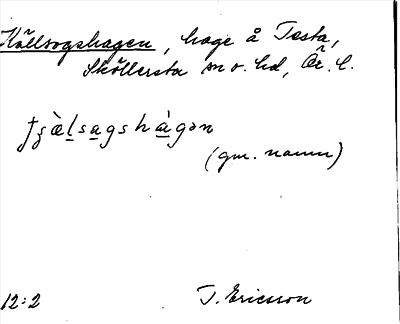 Källsogshagen, hage å Testa,
Sköllersta sn o. hd, Ör. l.
tʒὲlsagshàgən
(gm. namn)
12:2 T. Ericsson